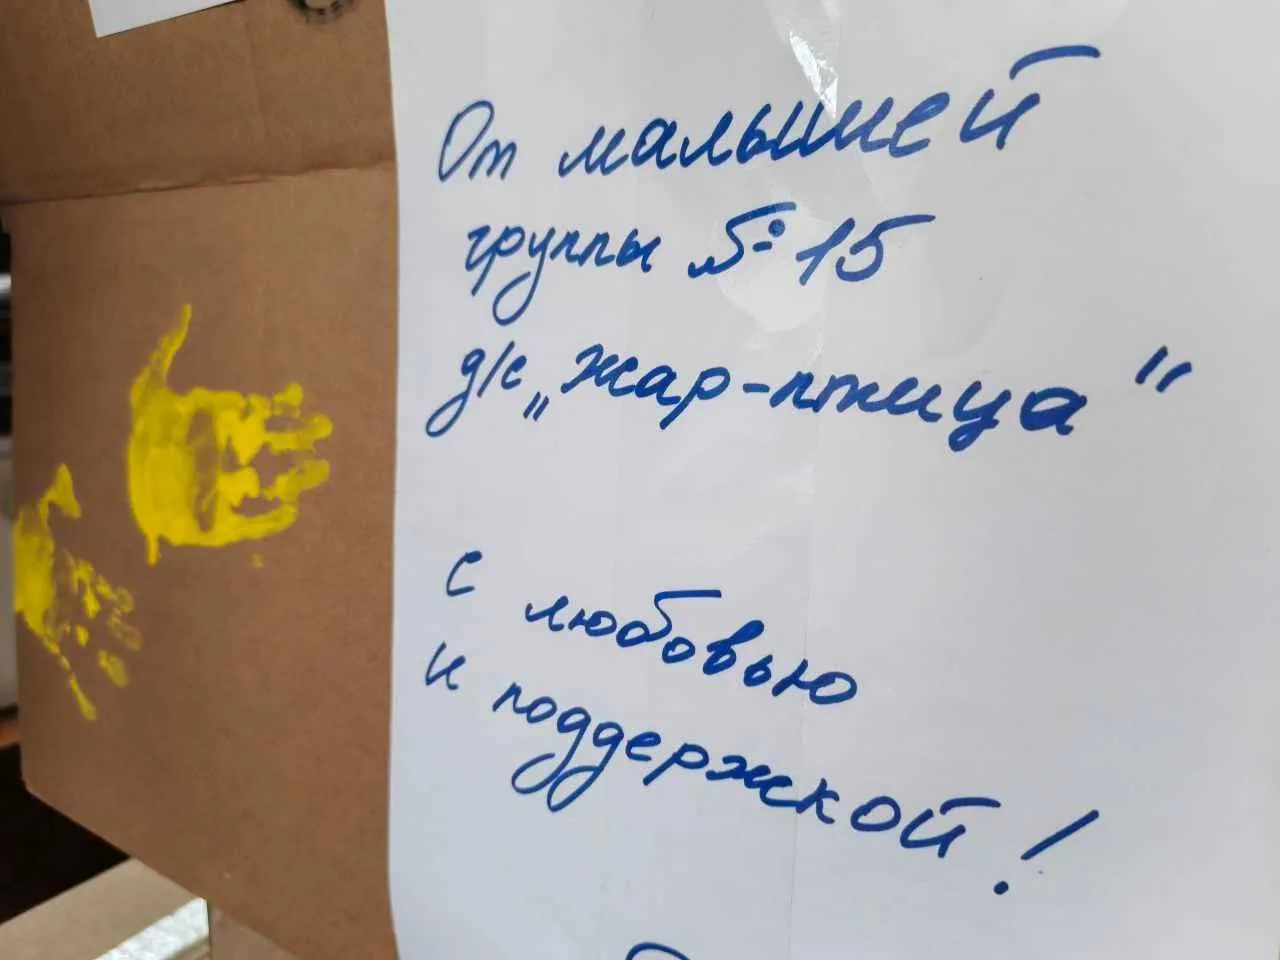 От малышей
группы № 15
д/с „Жар-птица"
с любовью
и поддержкой!